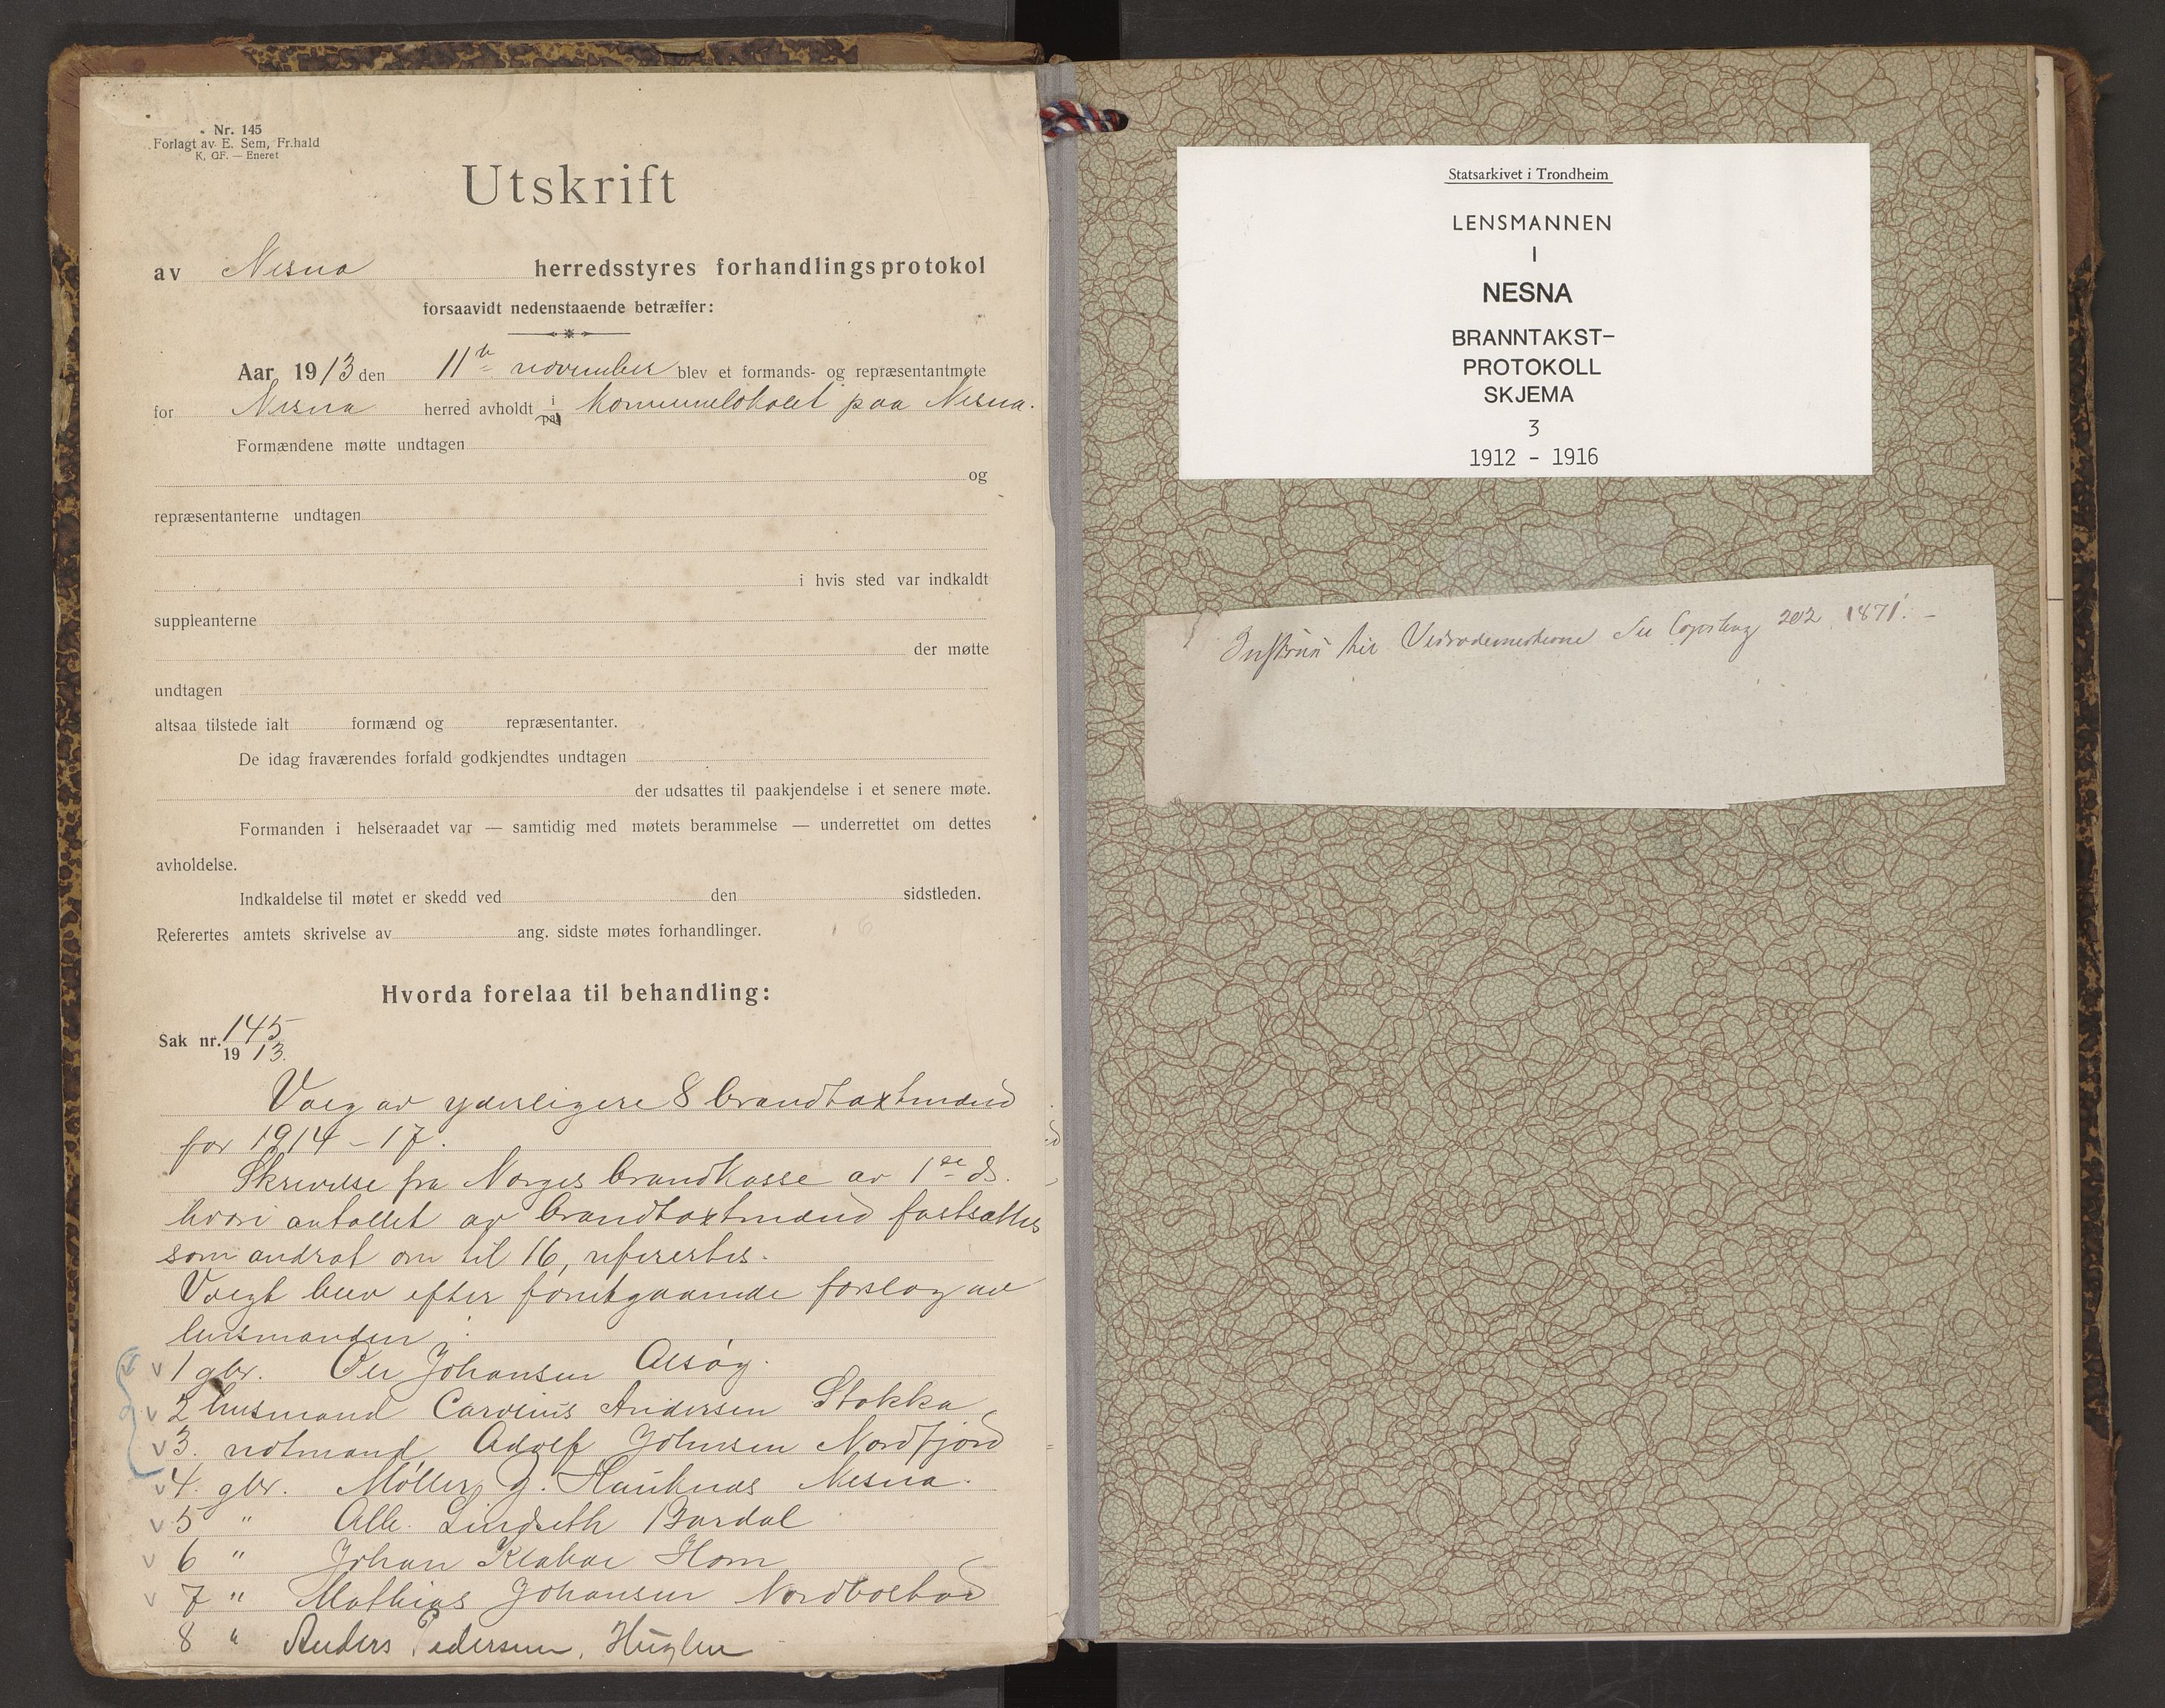 Nr. 145
Forlagt av E. Sem, Fr.hald
K, GF. — Eneret
Utskrift
av Nesna herredsstyres forhandlingsprotokol
forsaavidt nedenstaaende betræffer:
Aar 1913 den 11te november blev et formands- og repræsentantmøte
for Nesna herred avholdt i paa Kommunelokalet paa Nesna.
Formændene møtte undtagen
og
repræsentanterne undtagen
i hvis sted var indkaldt
suppleanterne
der møtte
undtagen
altsaa tilstede ialt formænd og repræsentanter.
De idag fraværendes forfald godkjendtes undtagen
der udsattes til paakjendelse i et senere møte.
Formanden i helseraadet var — samtidig med møtets berammelse — underrettet om dettes
avholdelse.
Indkaldelse til møtet er skedd ved den sidstleden.
Referertes amtets skrivelse av ang. sidste møtes forhandlinger.
Hvorda forelaa til behandling:
Sak nr. 145
1913.
Valg av yderligere 8 brandtaxtmænd
for 1914 - 17.
Skrivelse fra Norges brandkasse av 1ste ds.
hvori antallet av brandtaxtmænd fastsættes
som andrat om til 16, refertes.
Valgt blev efter foregaaende forslag av
lensmanden:
1 gbr. Ole Johansen Alsøy.
2 husmand Carolius Andersen Stokka
3. notmand Adolf Johnsen Nordfjord
4. gbr. Møller J. Hauknes Nesna.
5 " Alb. Lindseth Bardal
6 " Johan Klabae Ham
7 " Mathias Johansen Nordbostad
8 " Anders Pedersen, Huglen
Statsarkivet i Trondheim
LENSMANNEN
I
NESNA
BRANNTAKST-
PROTOKOLL
SKJEMA
3
1912 - 1916
til See 202 1871. -